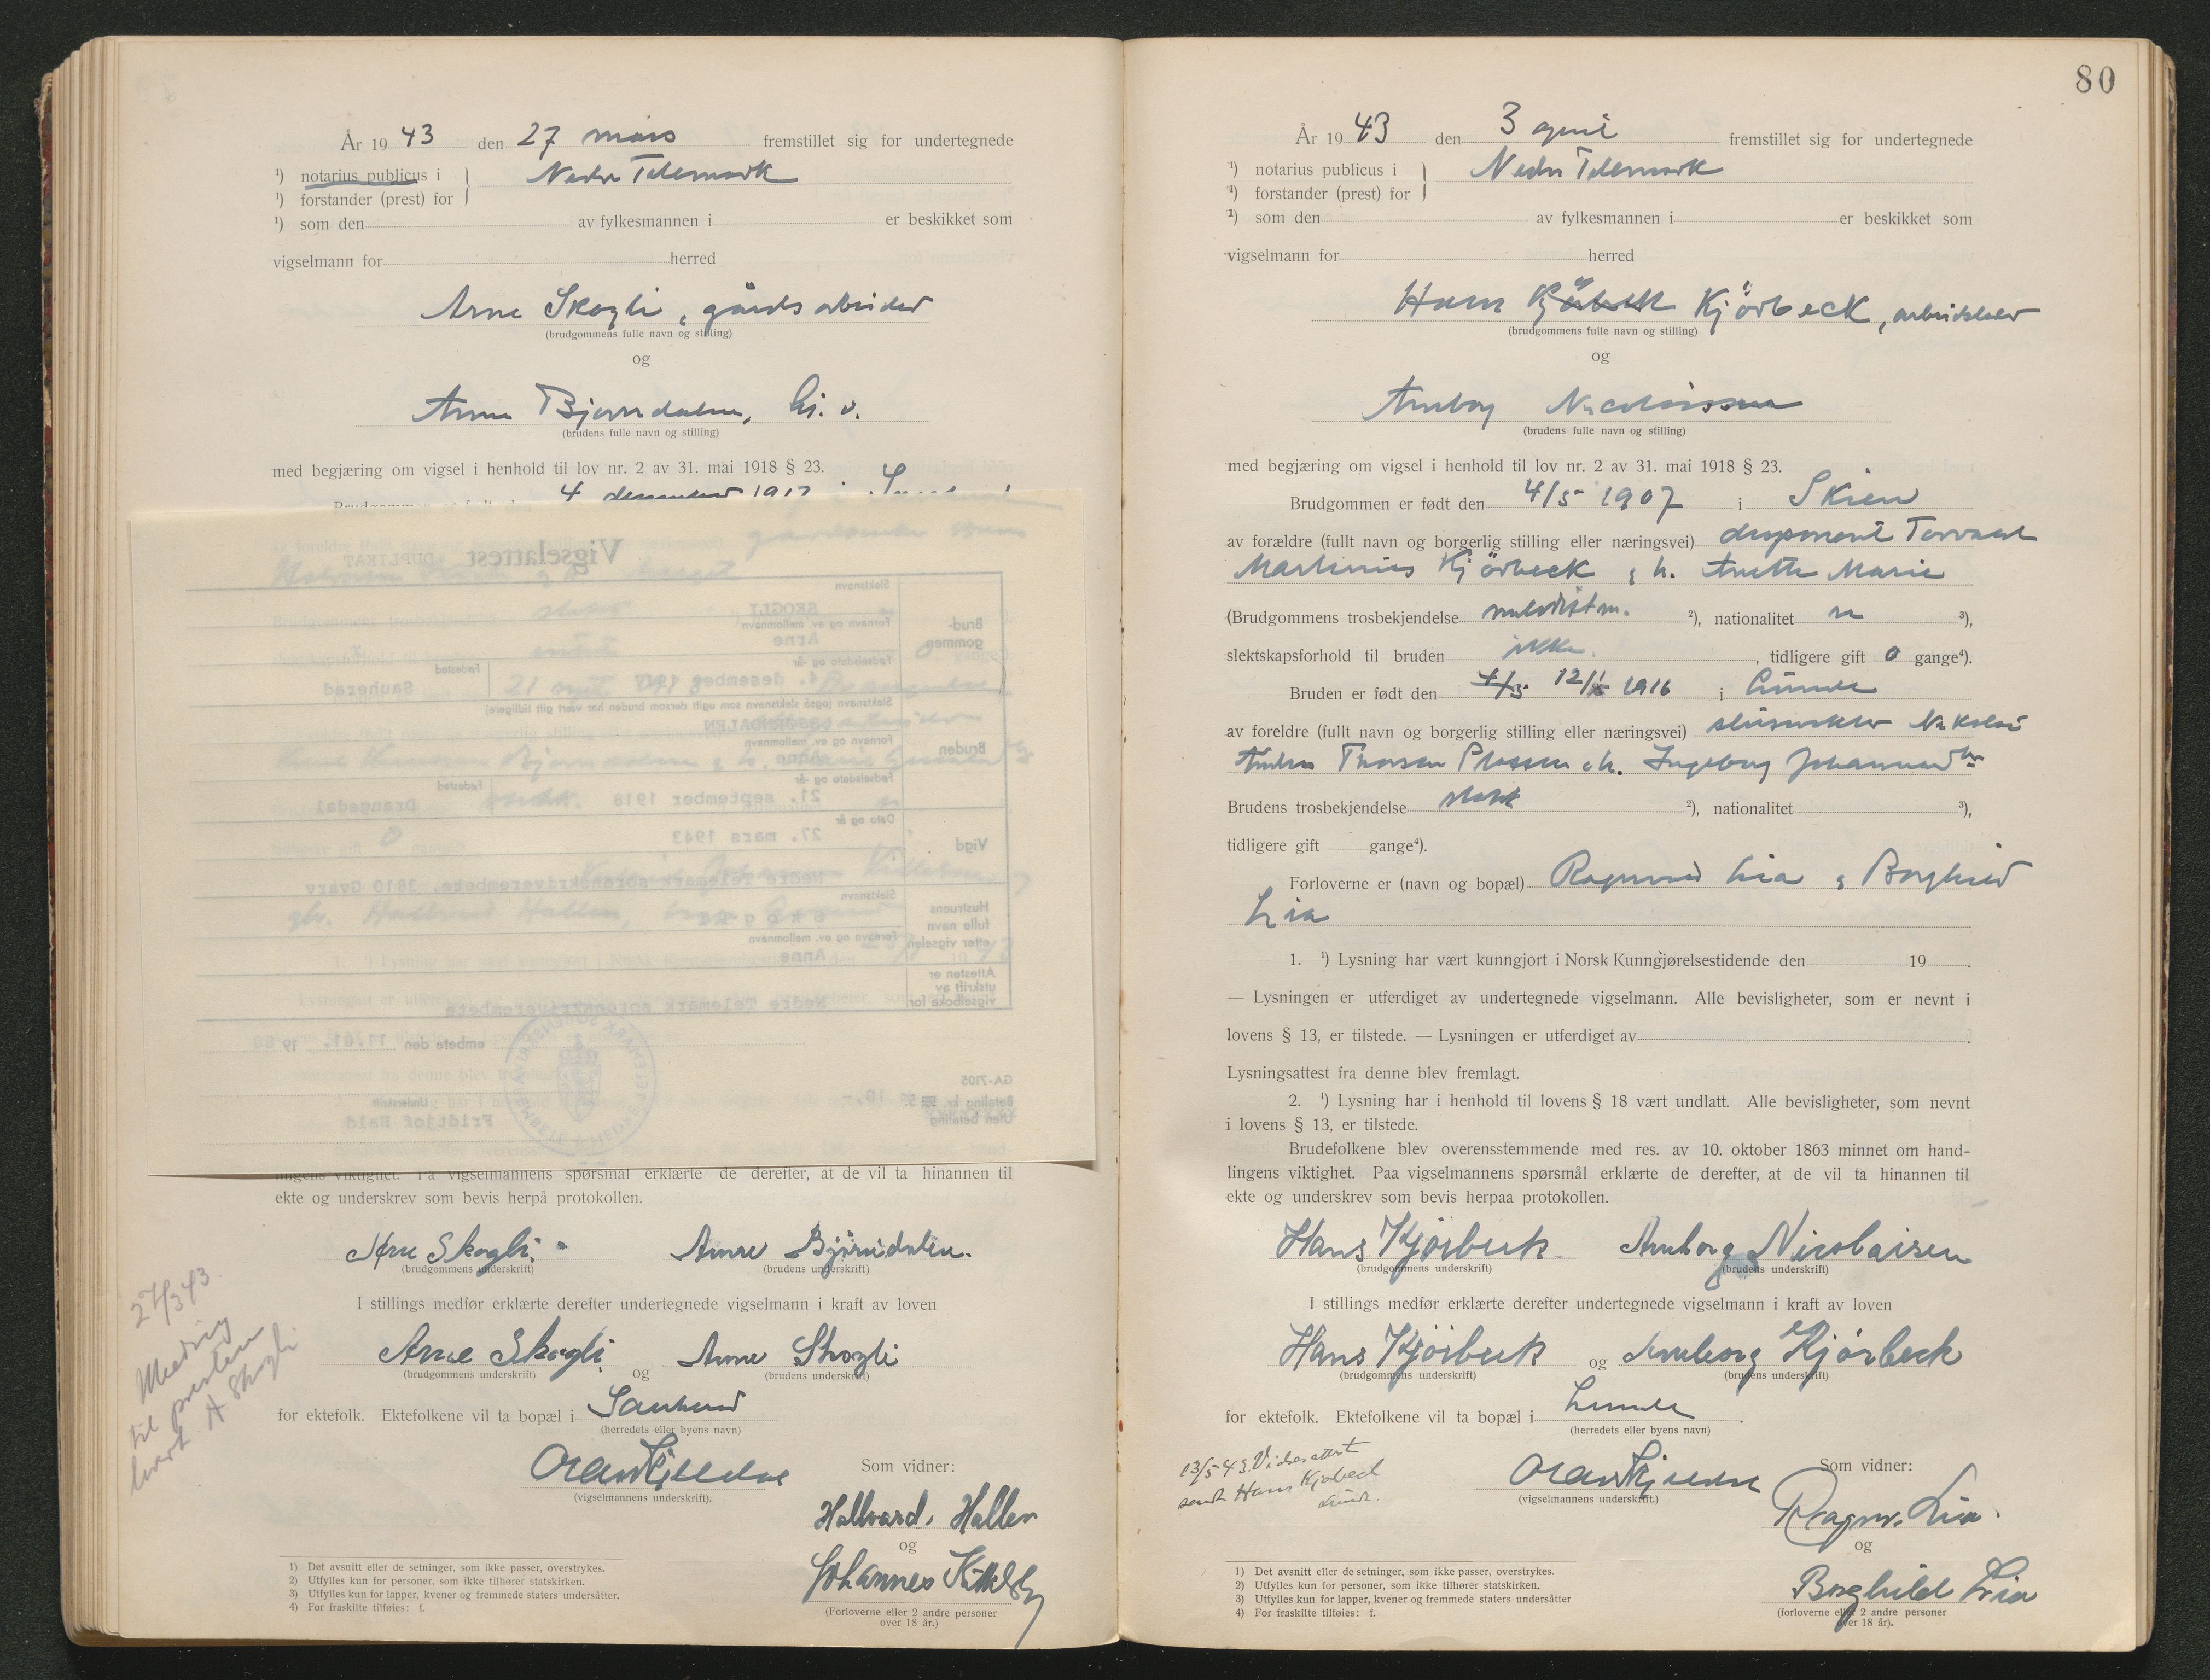 År 19 43 den 27 mars fremstillet sig for undertegnede
¹) notarius publicus i } Nedre Telemark
¹) forstander (prest) for
¹) som den av fylkesmannen i er beskikket som
vigselmann for herred
Arne Skogli, gårdsarbeider
(brudgommens fulle navn og stilling)
og
Anne Bjørndalen, hj. v.
(brudens fulle navn og stilling)
med begjæring om vigsel i henhold til lov nr. 2 av 31. mai 1918 § 23.
4 desember 1917 i
Vigselattest DUPLIKAT
Brudgommen
Slektsnavn
SKOGLI
Fornavn og ev. mellomnavn
Arne
Fødselsdato og -år
4. desember 1917
Fødested
Sauherad
Bruden
Slektsnavn (også slektsnavn som ugift dersom bruden har vært gift tidligere)
BJØRNDALEN
Fornavn og ev. mellomnavn
Anne
Fødselsdato og -år
21. september 1918
Fødested
Drangedal
Vigd
Dato og år
27. mars 1943
Nedre Telemark sorenskriverembete, 3810 Gvarv
Hustruens fulle navn etter vigselen
Slektsnavn
Fornavn og ev. mellomnavn
Anne
Attesten er utskrift av vigselboka for
Nedre Telemark sorenskriverembete
embete den 11/01. 19 80
GA-7105
Betaling kr.
10,-
Uten betaling
Underskrift
Fridtjof Hald
lingens viktighet. Pa vigselmannens spørsmål erklærte de derefter, at de vil ta hinannen til
ekte og underskrev som bevis herpå protokollen.
Arne Skogli. Anne Bjørndalen.
(brudgommens underskrift) (brudens underskrift)
I stillings medfør erklærte derefter undertegnede vigselmann i kraft av loven
Arne Skogli og Anne Skogli
(brudgommens underskrift) (brudens underskrift)
for ektefolk. Ektefolkene vil ta bopæl i Sauherad
(herredets eller byens navn)
27/3 43
til presten
A Skogli
(vigselmannens underskrift).
Som vidner:
Hallvard. Hallen
og
Johannes
(Forloverne eller 2 andre personer
over 18 år.)
1) Det avsnitt eller de setninger, som ikke passer, overstrykes.
2) Utfylles kun for personer, som ikke tilhører statskirken.
3) Utfylles kun for lapper, kvener og fremmede staters undersåtter.
4) For fraskilte tilføies: f.
80
År 19 43 den 3 april fremstillet sig for undertegnede
¹) notarius publicus i } Nedre Telemark
¹) forstander (prest) for
¹) som den av fylkesmannen i er beskikket som
vigselmann for herred
Hans Kjörbeck, arbeidsleder
(brudgommens fulle navn og stilling)
og
Anborg Nicolaissen
(brudens fulle navn og stilling)
med begjæring om vigsel i henhold til lov nr. 2 av 31. mai 1918 § 23.
Brudgommen er født den 4/5 1907 i Skien
av forældre (fullt navn og borgerlig stilling eller næringsvei) disponent Torvald
Martinius Kjörbeck og h. Anette Marie
(Brudgommens trosbekjendelse metodist m. ²), nationalitet n ³),
slektskapsforhold til bruden ikke. , tidligere gift 0 gange⁴).
Bruden er født den 12/1 1916 i Lunde
av foreldre (fullt navn og borgerlig stilling eller næringsvei) slusevokter Nikolai
h. Ingeborg
Brudens trosbekjendelse statsk ²), nationalitet ³),
tidligere gift gange⁴).
Forloverne er (navn og bopæl) Ragnvald Lia og Borghild
Lia
1. ¹) Lysning har vært kunngjort i Norsk Kunngjørelsestidende den 19 .
— Lysningen er utferdiget av undertegnede vigselmann. Alle bevisligheter, som er nevnt i
lovens § 13, er tilstede. — Lysningen er utferdiget av .
Lysningsattest fra denne blev fremlagt.
2. ¹) Lysning har i henhold til lovens § 18 vært undlatt. Alle bevisligheter, som nevnt
i lovens § 13, er tilstede.
Brudefolkene blev overensstemmende med res. av 10. oktober 1863 minnet om hand-
lingens viktighet. Paa vigselmannens spørsmål erklærte de derefter, at de vil ta hinannen til
ekte og underskrev som bevis herpaa protokollen.
Hans Kjörbeck Anborg Nicolaisen
(brudgommens underskrift) (brudens underskrift)
I stillings medfør erklærte derefter undertegnede vigselmann i kraft av loven
Hans Kjörbeck og Anborg Kjørbeck
(brudgommens underskrift) (brudens underskrift)
for ektefolk. Ektefolkene vil ta bopæl i Lunde .
(herredets eller byens navn)
13/5 43. Vielsesattest
sendt Hans Kjøbeck
Lunde.
(vigselmannens underskrift.)
Som vidner:
Ragnv. Lia.
og
Borghild Lia
(forloverne eller 2 andre personer
over 18 år).
1) Det avsnitt eller de setninger, som ikke passer, overstrykes.
2) Utfylles kun for personer, som ikke tilhører statskirken.
3) Utfylles kun for lapper, kvener og fremmede staters undersåtter
4) For fraskilte tilføies: f.